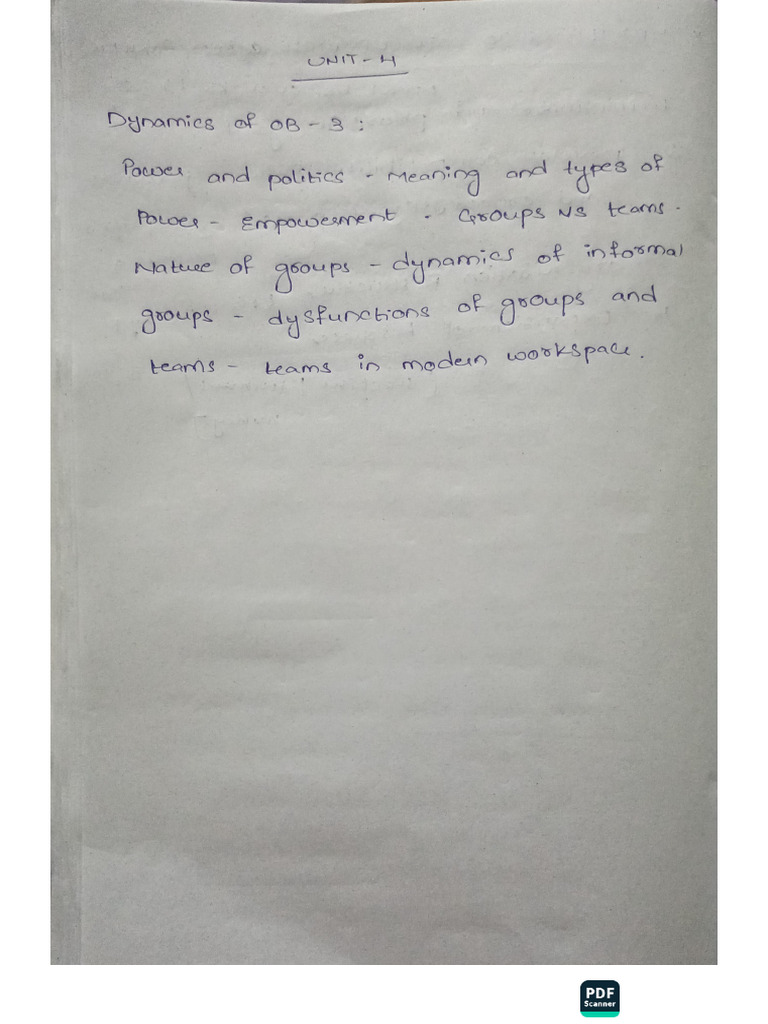 UNIT - 4
Dynamics of OB - 3 :
Power and politics - Meaning and types of
Power - Empowerment - Groups Vs teams -
Nature of groups - dynamics of informal
groups - dysfunctions of groups and
teams - teams in modern workspace.
PDF
Scanner